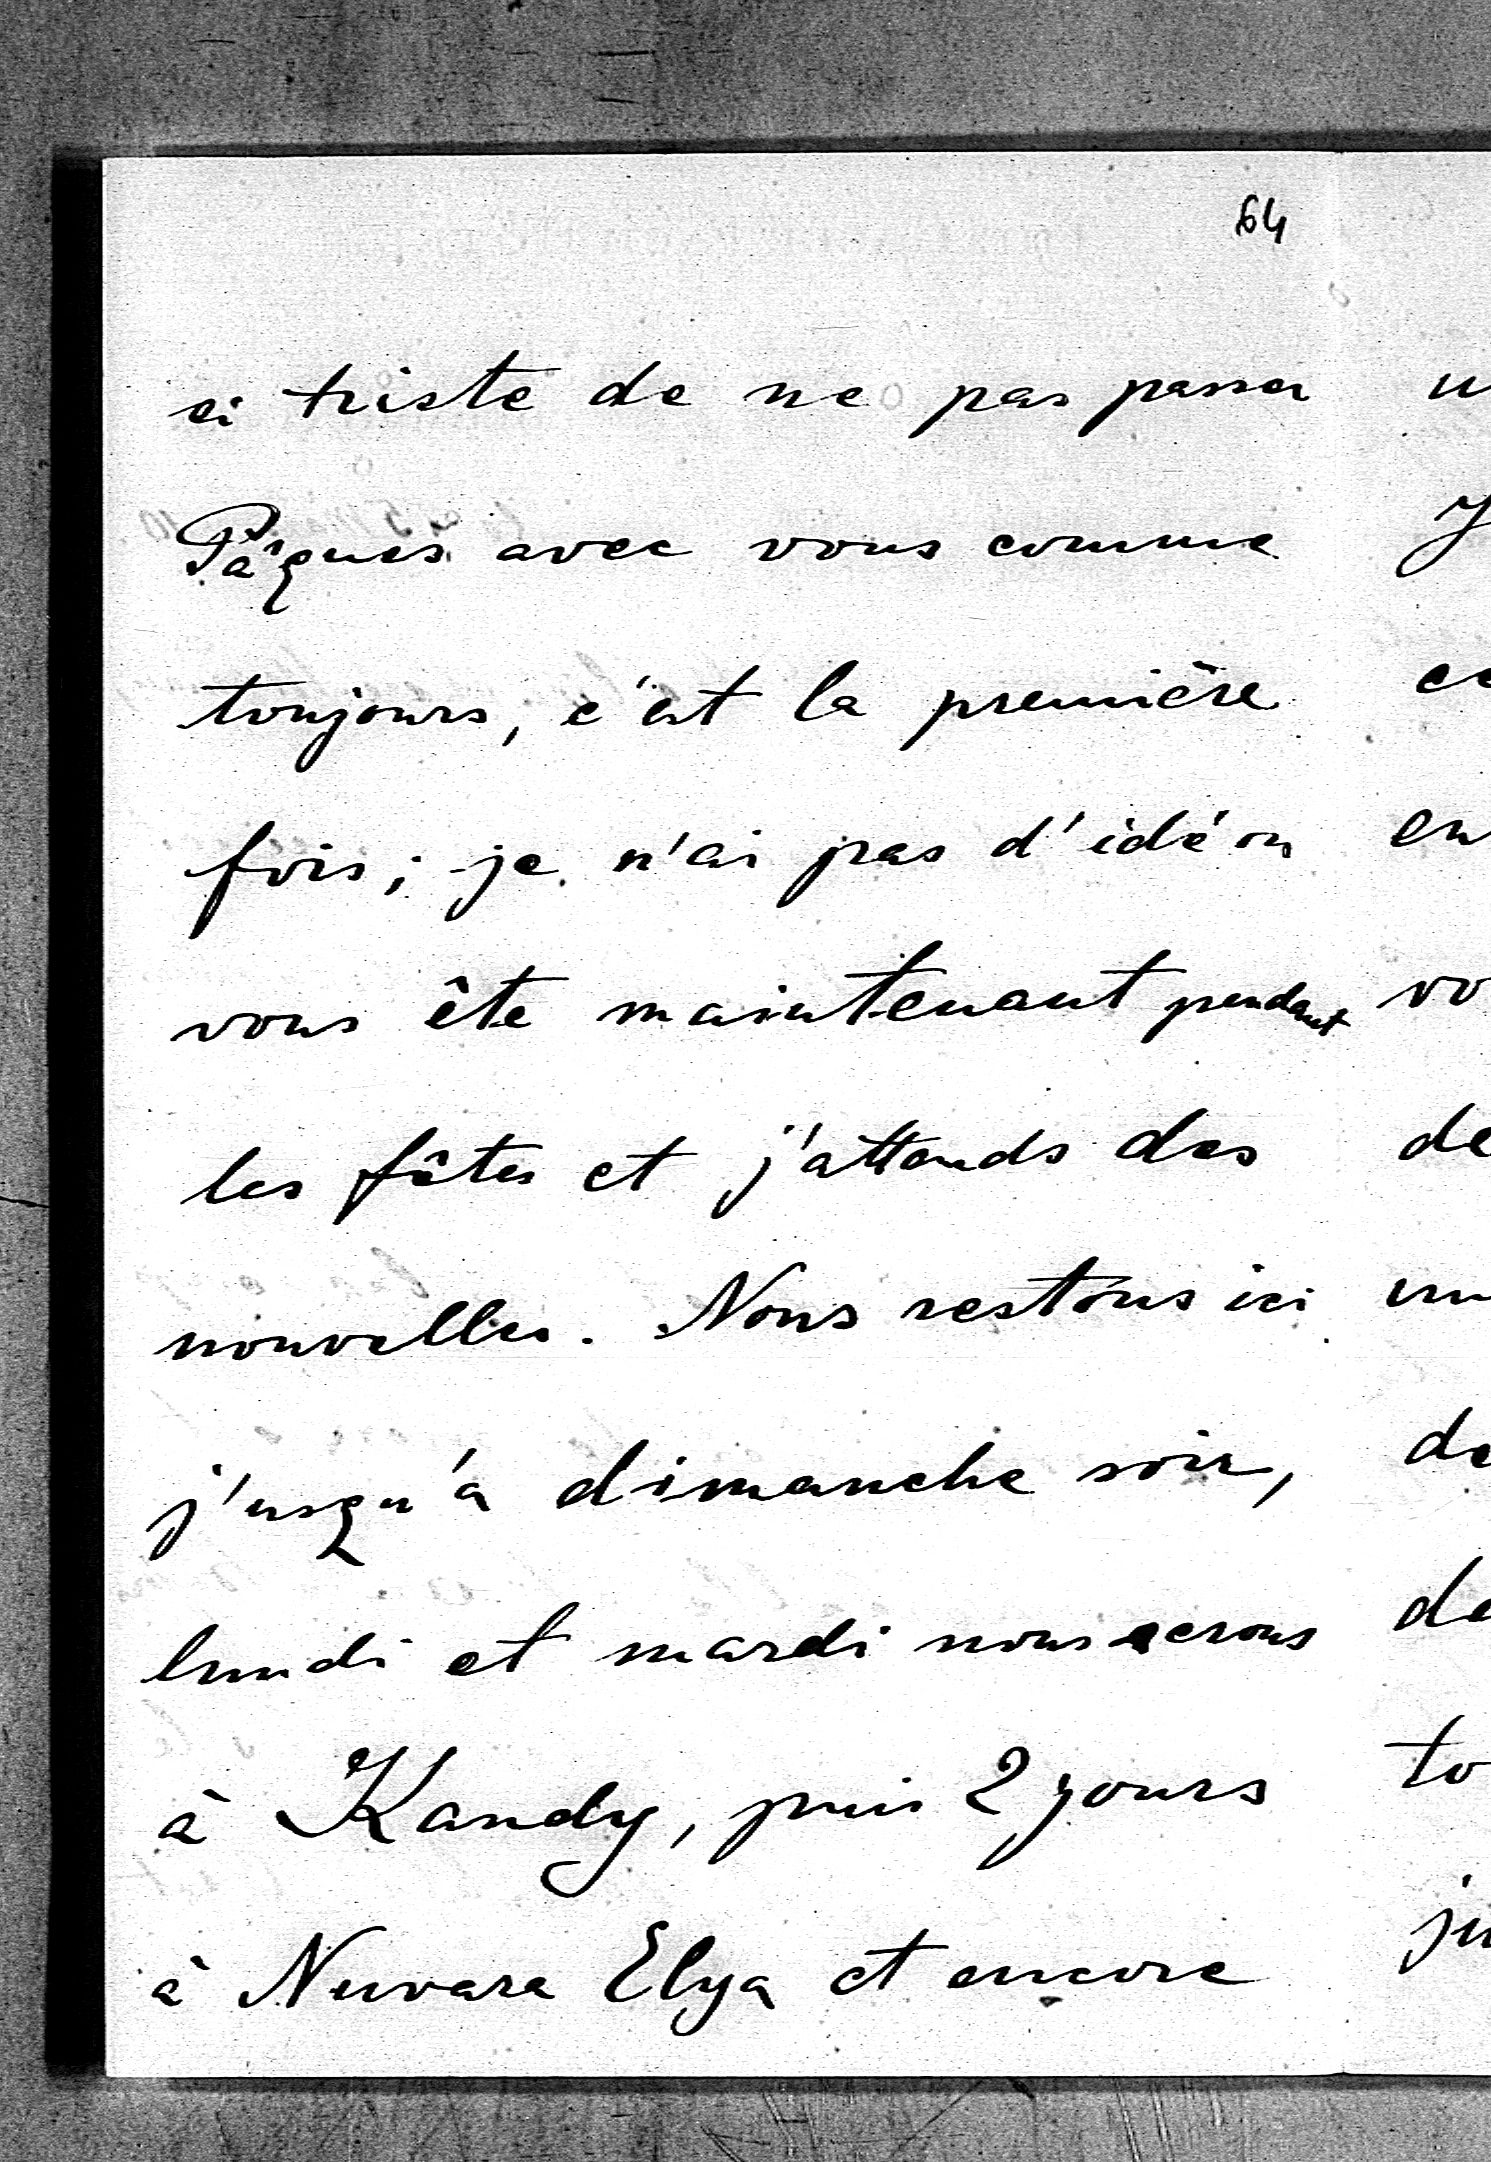 64
si triste de ne pas passer
Pâques avec vous comme
toujours, c'est la première
fois; je n'ai pas d'idé où
vous ête maintenant pendant
les fêtes et j'attends des
nouvelles. Nous restons ici
j'usqu'à dimanche soir,
lundi et mardi nous serons
à Kandy, puis 2 jours
à Nuvara Elya et encore